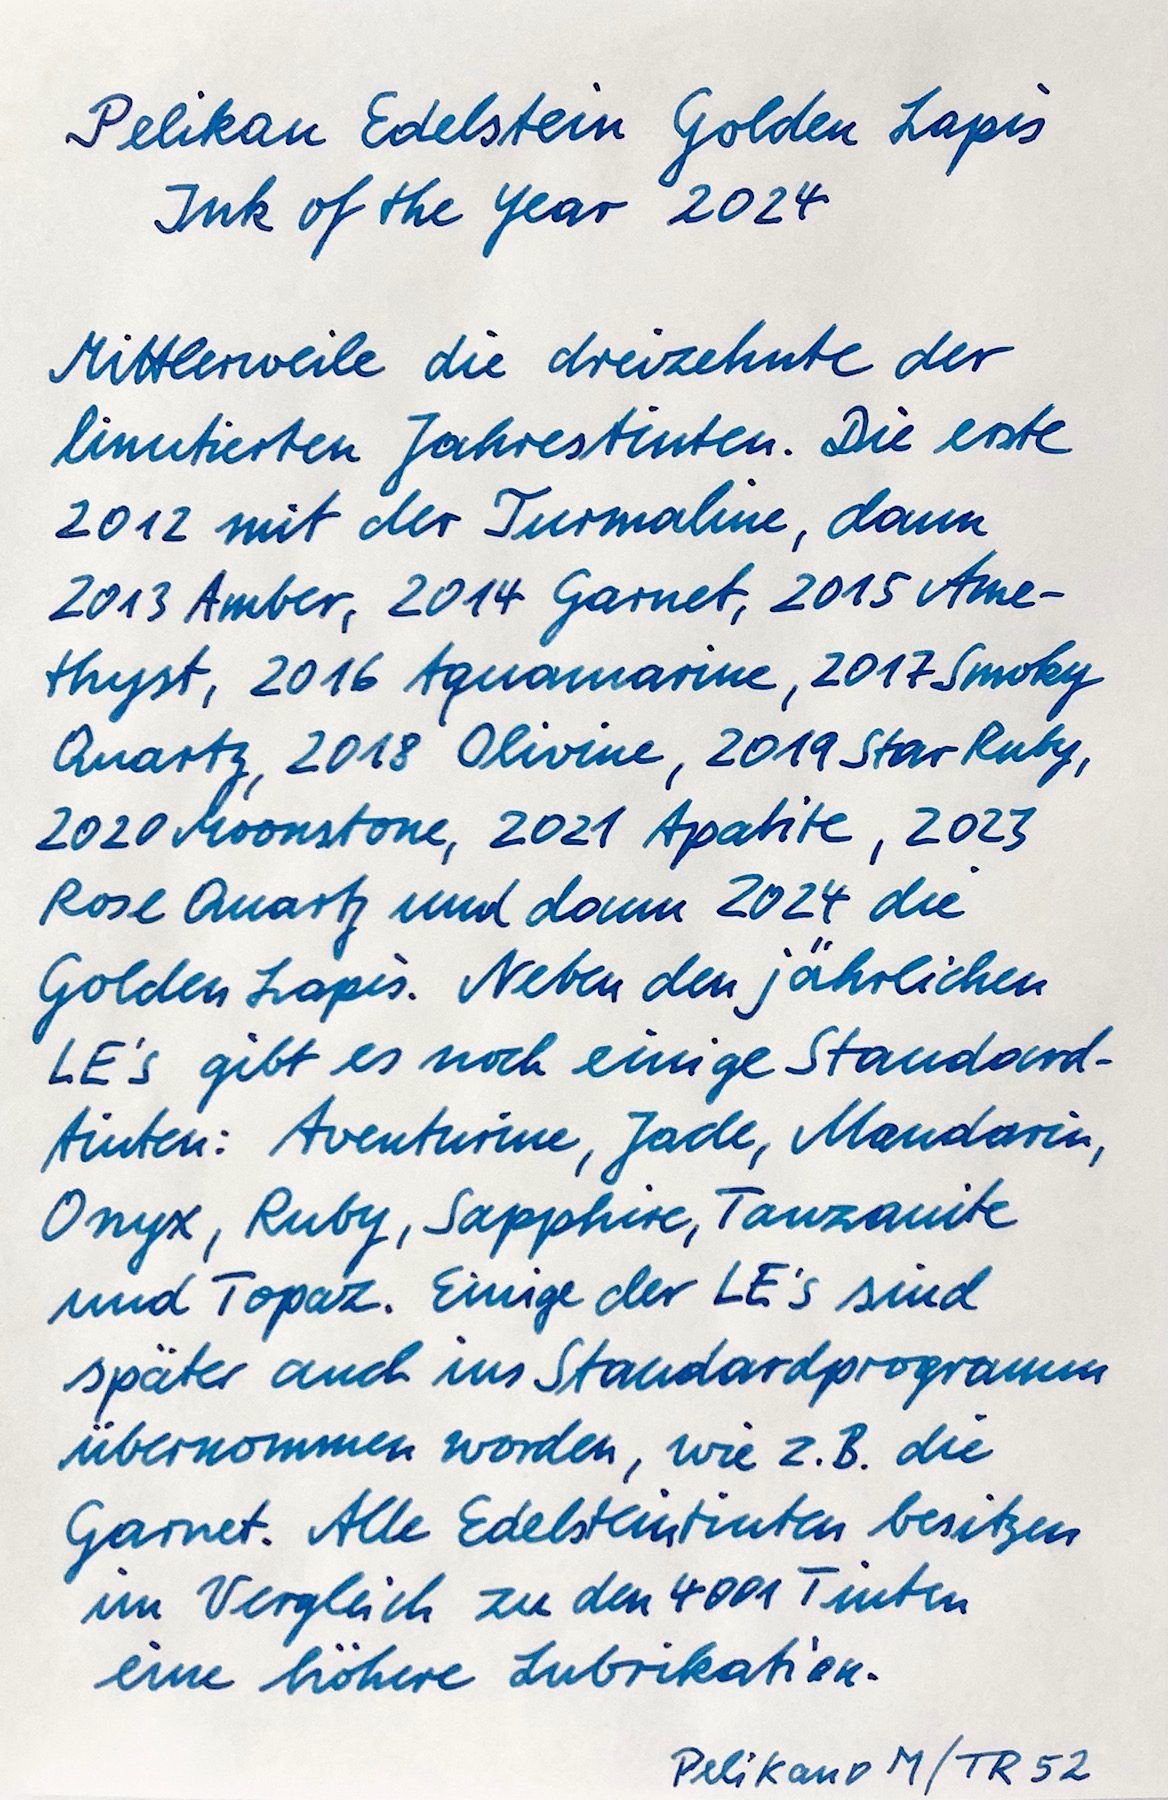 Pelikan Edelstein Golden Lapis
Ink of the Year 2024
Mittlerweile die dreizehnte der
limitierten Jahrestinten. Die erste
2012 mit der Turmaline, dann
2013 Amber, 2014 Garnet, 2015 Ame-
thyst, 2016 Aquamarine, 2017 Smoky
Quartz, 2018 Olivine, 2019 Star Ruby,
2020 Moonstone, 2021 Apatite, 2023
Rose Quartz und dann 2024 die
Golden Lapis. Neben den jährlichen
LE's gibt es noch einige Standard-
tinten: Aventurine, Jade, Mandarin,
Onyx, Ruby, Sapphire, Tanzanite
und Topaz. Einige der LE's sind
später auch ins Standardprogramm
übernommen worden, wie z.B. die
Garnet. Alle Edelsteintinten besitzen
im Vergleich zu den 4001 Tinten
eine höhere Lubrikation.
Pelikano M/TR 52